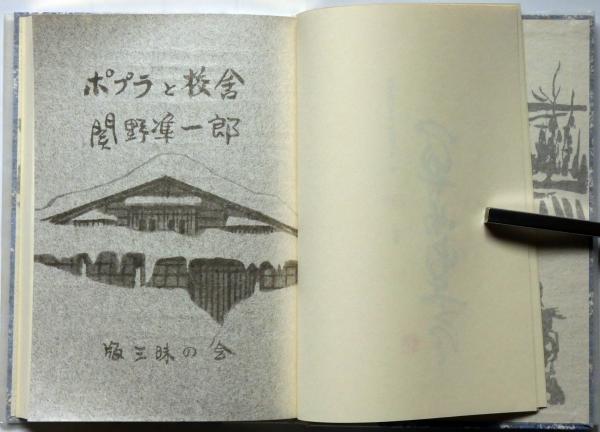 ポプラと校舎
関野凖一郎
版三昧の会